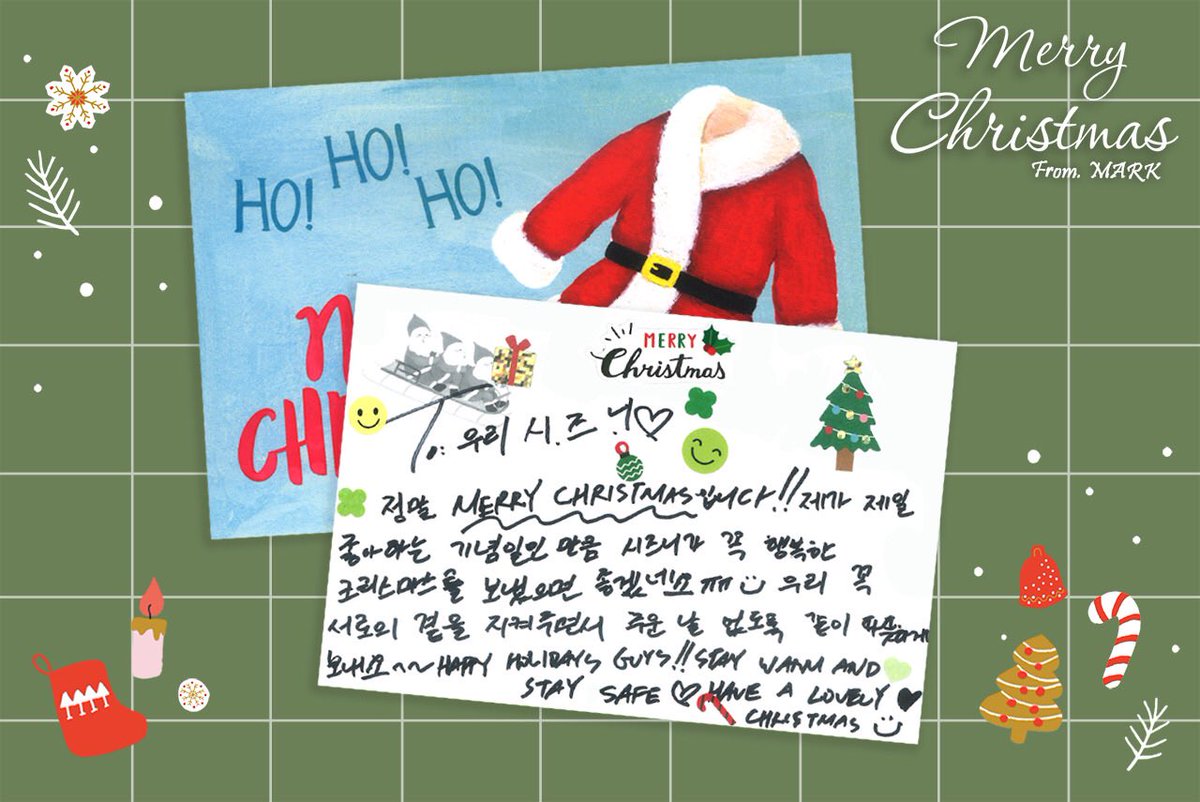 Merry
Christmas
From. MARK
HO! HO! HO!
MERRY
Christmas
To: 우리 시.즈.니♡
정말 MERRY CHRISTMAS입니다!! 제가 제일
좋아하는 기념일인 만큼 시즈니가 꼭 행복한
크리스마스를 보냈으면 좋겠네요 ㅠㅠ 우리 꼭
서로의 곁을 지켜주면서 추운 날 없도록 같이 따뜻하게
보내요~~ HAPPY HOLIDAYS GUYS!! STAY WARM AND
STAY SAFE ♡ HAVE A LOVELY
CHRISTMAS